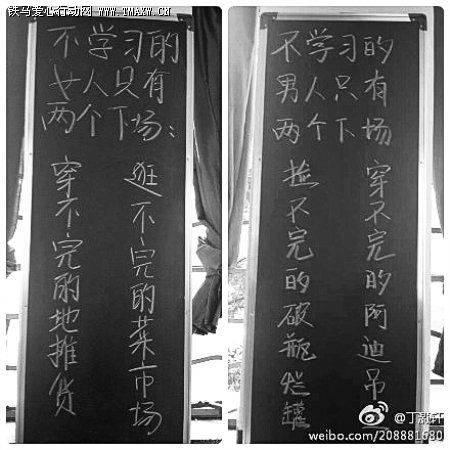 铁马爱心行动网
WWW.TMAXW.CN
不学习的
女人只有
两个下场:
逛不完的菜市场
穿不完的地摊货
不学习的
男人只有
两个下场
穿不完的阿迪吊
捡不完的破瓶烂罐
weibo.com/208881680